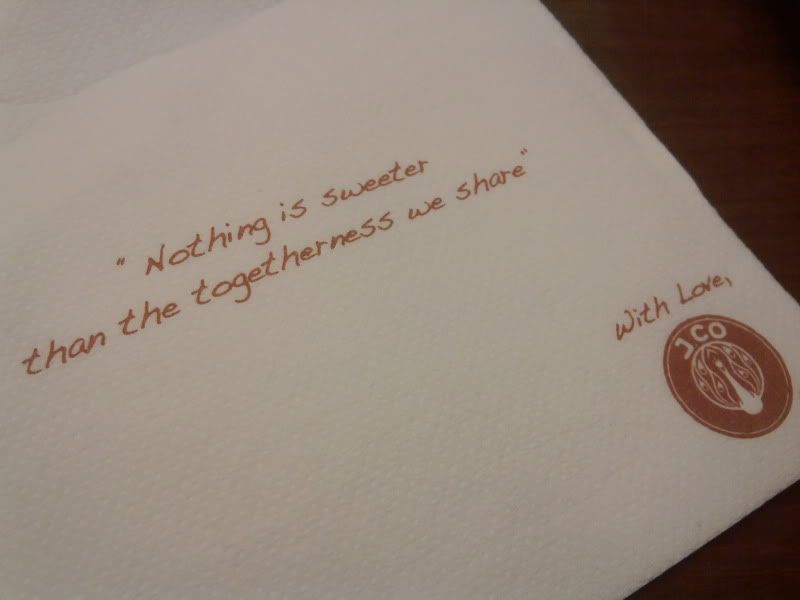 " Nothing is sweeter
than the togetherness we share"
With Love,
J.CO